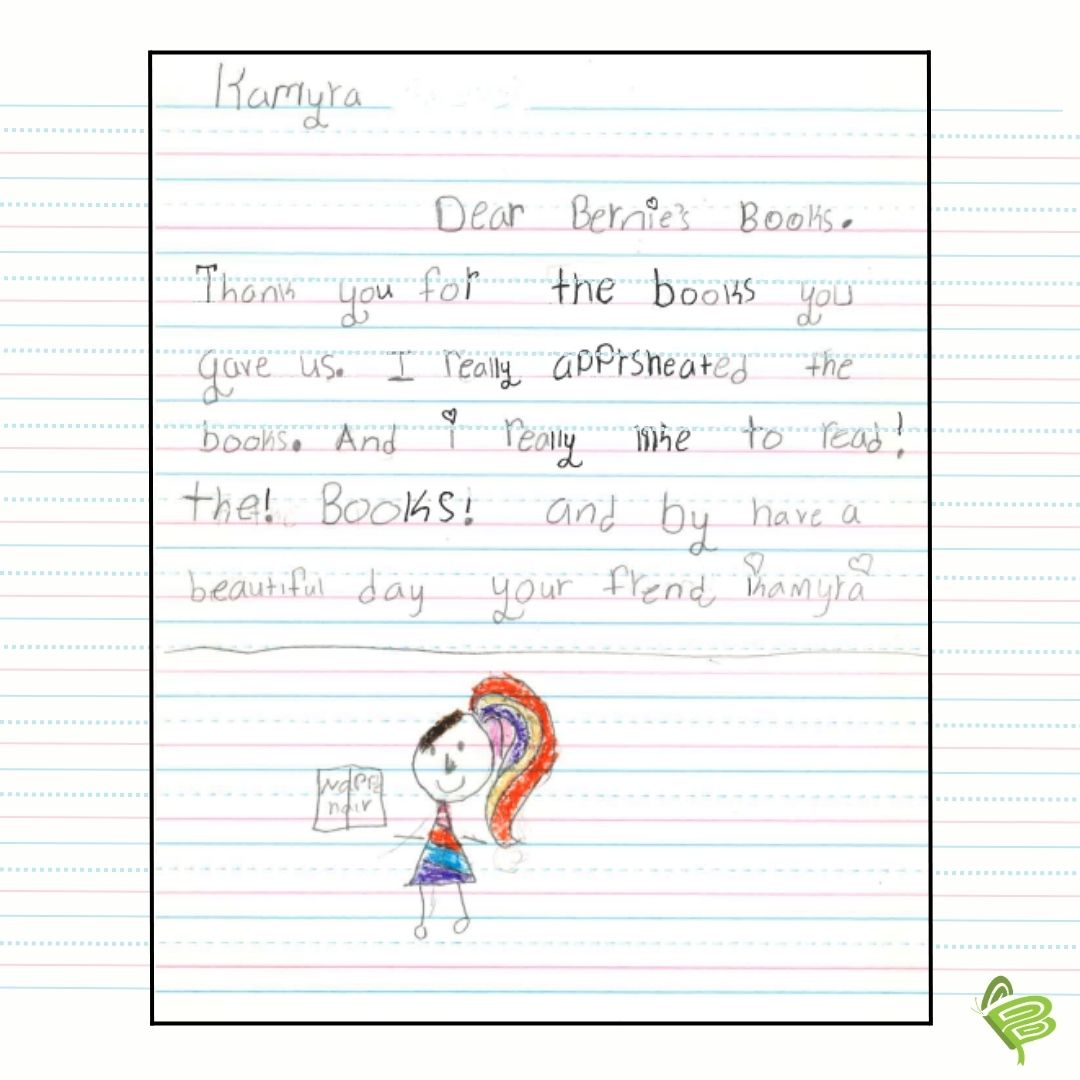 Kamyra
Dear Bernie's Books.
Thank you for the books you
gave us. I really apprsheated the
books. And i really like to read!
the! Books! and by have a
beautiful day your frend kamyra
Nappe
hair